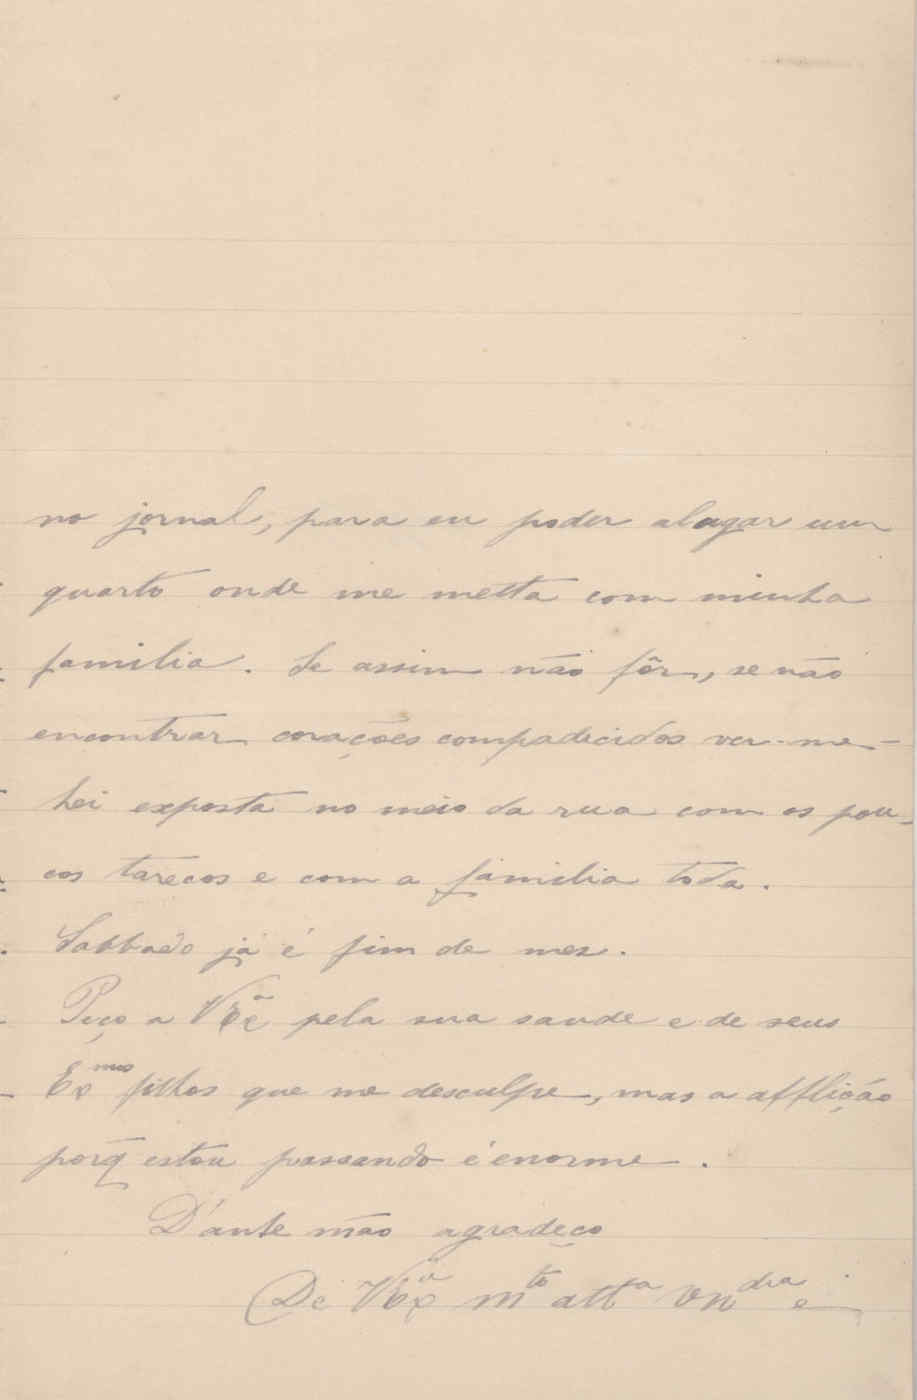 no jornal, para eu poder alugar um
quarto onde me metta com minha
familia. Se assim não fôr, se não
encontrar corações compadecidos ver-me-
hei exposta no meio da rua com os pou-
cos tarecos e com a familia toda.
Sabbado já é fim de mez.
Peço a V Exª pela sua saude e de seus
Exmos filhos que me desculpe, mas a afflição
porq̃ estou passando é enorme.
D'ante mão agradeço
De V Exª mto attª vndra e